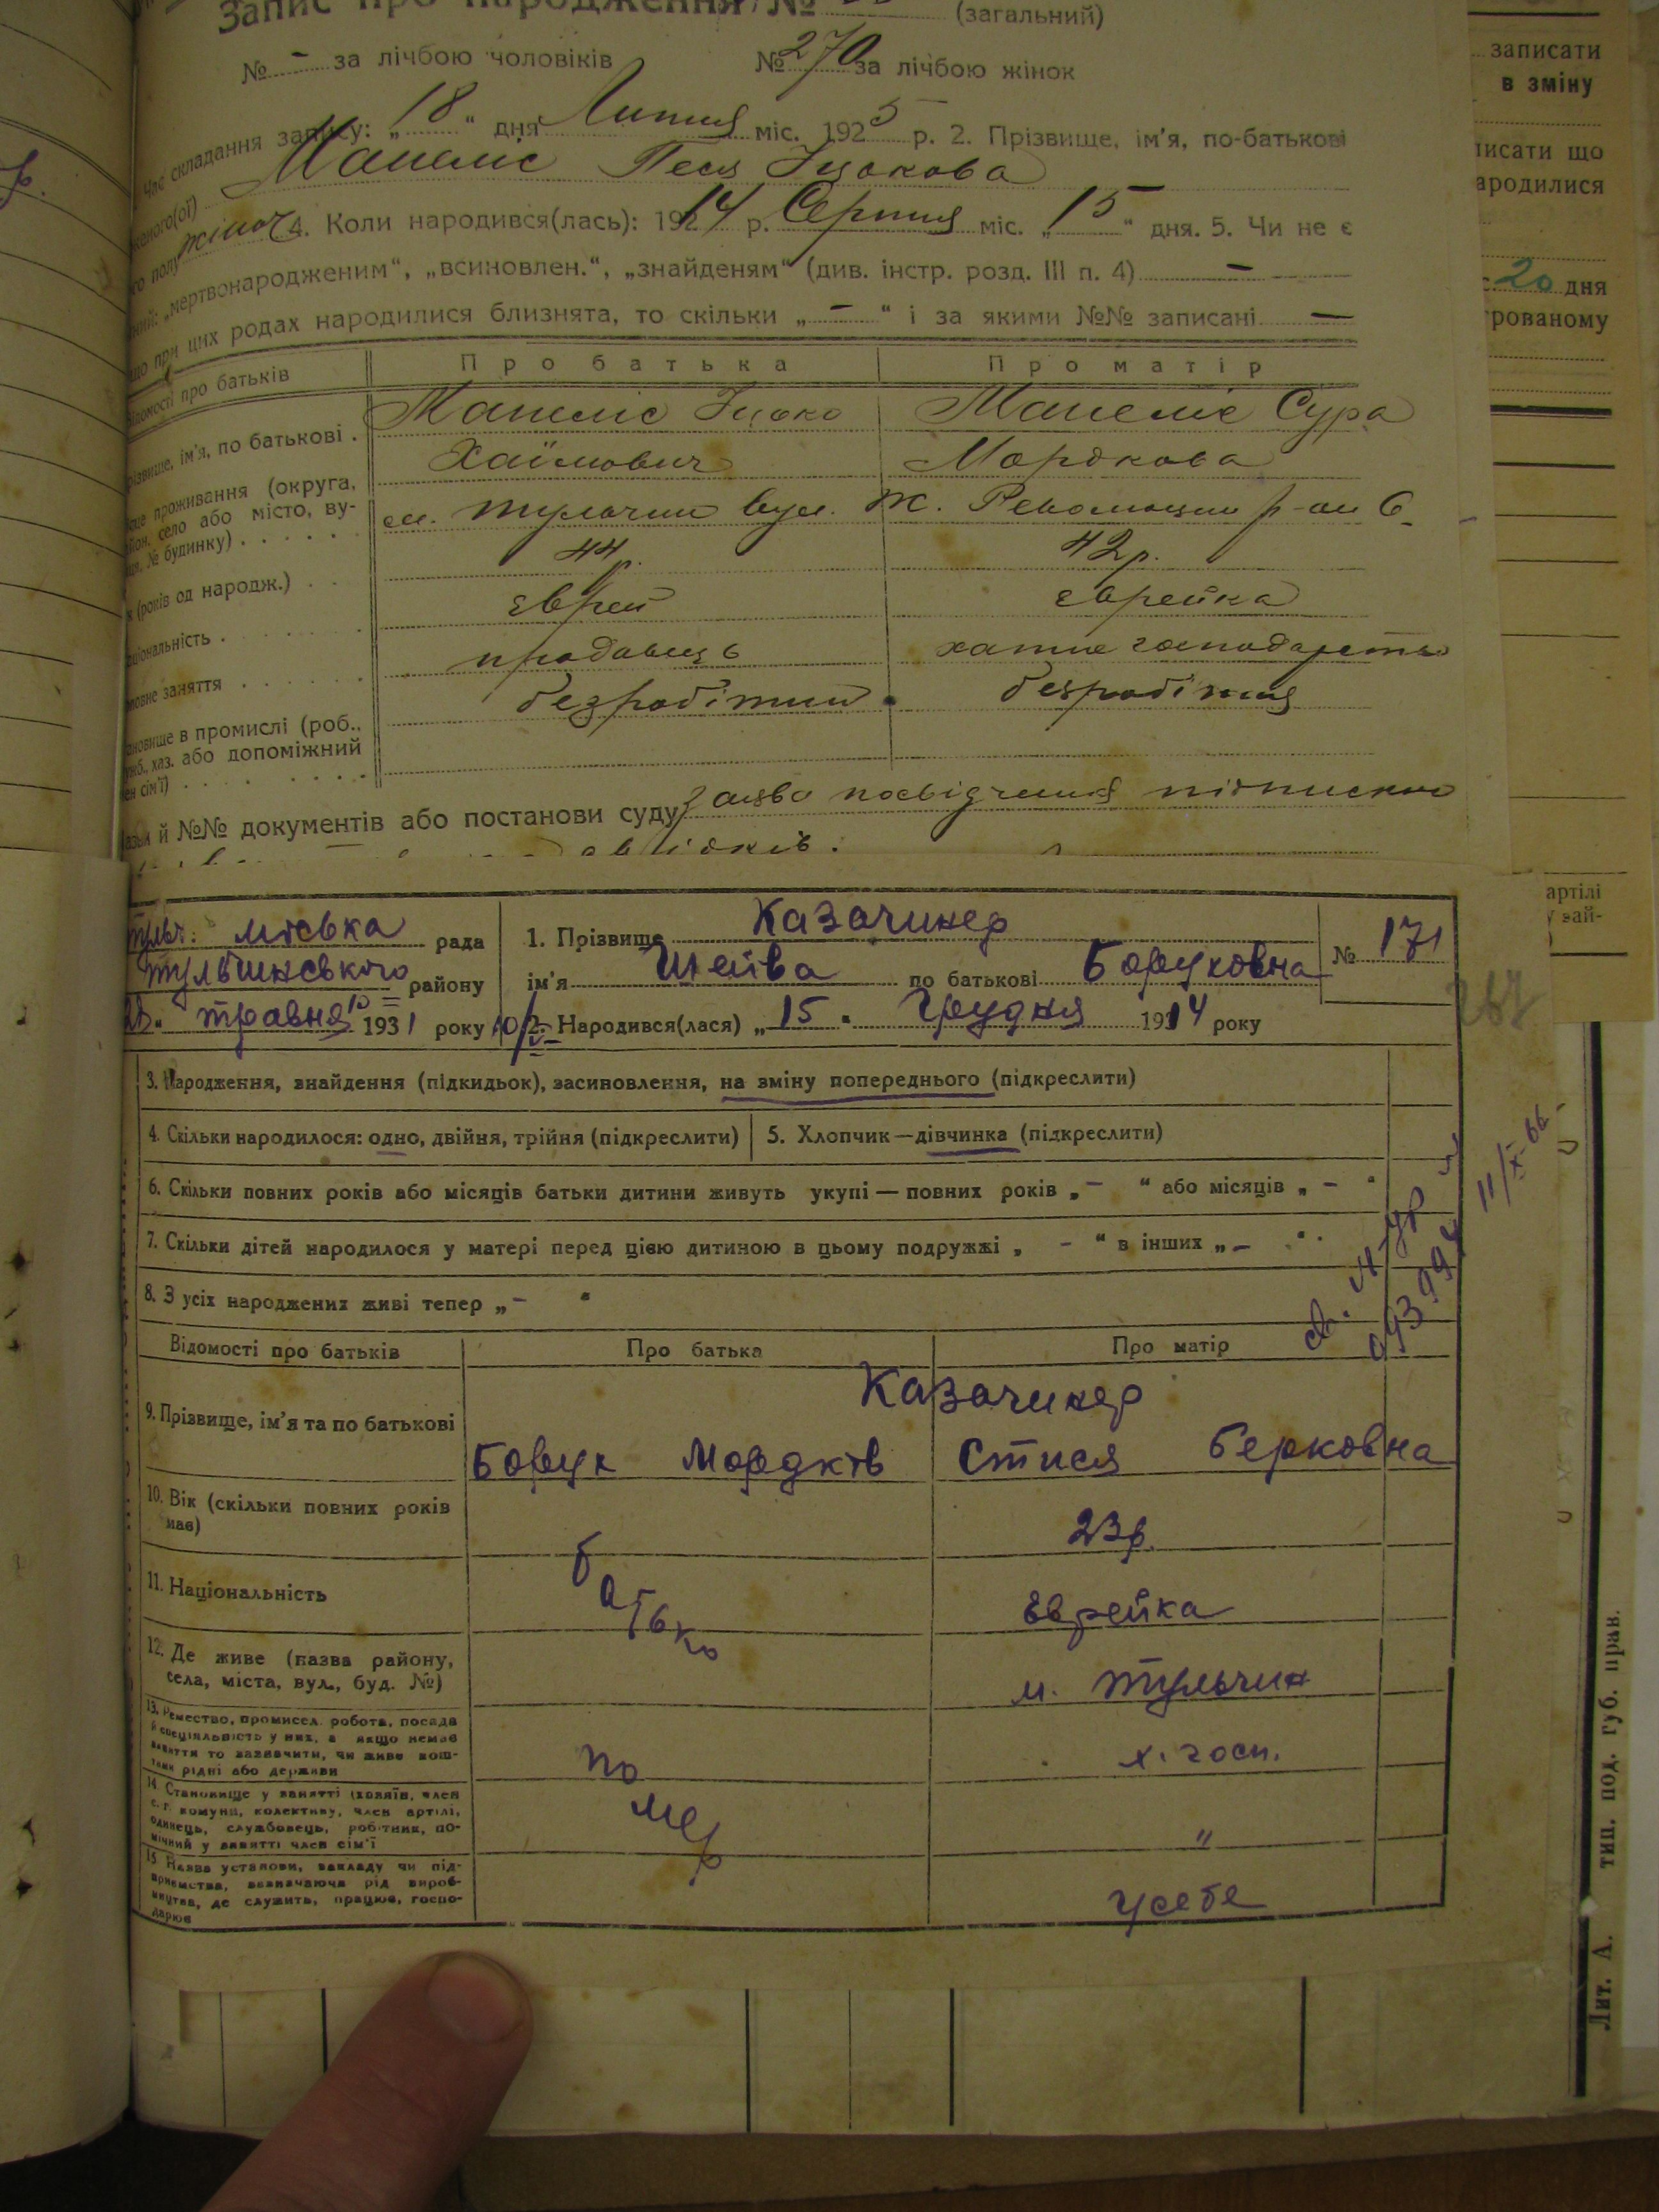 Запис про народження №
(загальний)
№ – за лічбою чоловіків № 270 за лічбою жінок
Час складання запису: „18“ дня Липня міс. 1925 р. 2. Прізвище, ім'я, по-батькові
Песя Іцкова
4. Коли народився(лась): 1914 р. Серпня міс. „15“ дня. 5. Чи не є
„мертвонародженим“, „всиновлен.“, „знайденям“ (див. інстр. розд. III п. 4) –
при цих родах народилися близнята, то скільки „–“ і за якими №№ записані –
про батьків Про батька Про матір
ім'я, по батькові Сура
Хаїмович Мордкова
проживання (округа,
село або місто, ву-
№ будинку)
м. Тульчин вул. Ж. Революции р-ои 6
(років од народж.) 44 р. 42 р.
єврей єврейка
заняття продавець хатнє господарство
в промислі (роб.,
хаз. або допоміжний
безробітний безробітня
й №№ документів або постанови суду заява посвідчення підпискою
свідків.
записати
в зміну
що
народилися
20 дня
артілі
Тульч: міська рада
Тульчинського району
травня 1931 року
1. Прізвище Казачинер
ім'я Шейва по батькові Боруховна
№ 171
2. Народився(лася) „15“ Грудня 1914 року
3. Народження, знайдення (підкидьок), засиновлення, на зміну попереднього (підкреслити)
4. Скільки народилося: одно, двійня, трійня (підкреслити) 5. Хлопчик—дівчинка (підкреслити)
6. Скільки повних років або місяців батьки дитини живуть укупі — повних років „–“ або місяців „–“
7. Скільки дітей народилося у матері перед цією дитиною в цьому подружжі „–“ в інших „–“
8. З усіх народжених живі тепер „–“
11/X-66
Відомості про батьків Про батька Про матір
9. Прізвище, ім'я та по батькові
Казачинер
Борух Мордков Стися Берковна
10. Вік (скільки повних років
має)
23 р.
11. Національність Батько Єврейка
12. Де живе (назва району,
села, міста, вул., буд. №)
м. Тульчин
13. Ремество, промисел. робота, посада
й спеціяльність у них, а якщо немає
заняття то зазначити, чи живе кош-
тами рідні або держави
помер
х. госп.
14. Становище у занятті (хозяїн, член
с. г. комуни, колективу, член артілі,
одинець, службовець, робітник, по-
мічний у занятті член сім'ї
"
15. Назва установи, закладу чи під-
приємства, зазначаючи рід вироб-
ництва, де служить, працює, госпо-
дарює
у себе
Лит. А. тип. под. губ. прав.